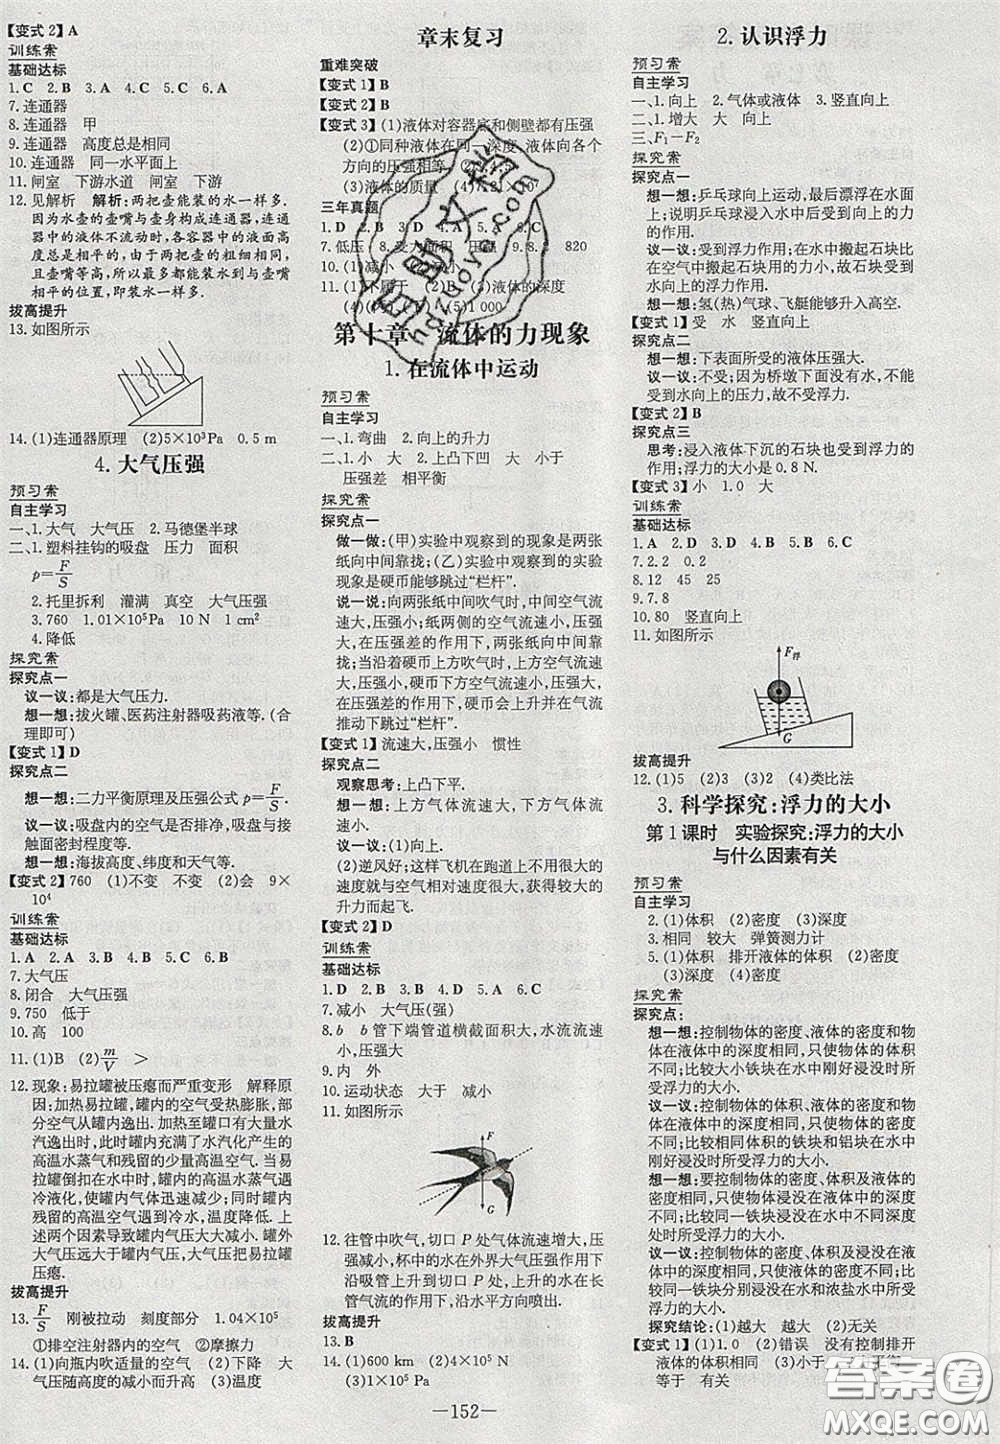 【变式2】A
训练案
基础达标
1. C 2. B 3. A 4. C 5. C 6. A
7. 连通器
8. 连通器 甲
9. 连通器 高度总是相同
10. 连通器 同一水平面上
11. 闸室 下游水道 闸室 下游
12. 见解析 解析:两把壶能装的水一样多.
因为水壶的壶嘴与壶身构成连通器,连通
器中的液体不流动时,各容器中的液面高
度总是相平的,由于两把壶的粗细相同,且
壶嘴等高,所以都能装水到与壶嘴
相平的位置,即装水一样多.
拔高提升
13. 如图所示
14. (1)连通器原理 (2)5×10³Pa 0.5 m
4. 大气压强
预习案
自主学习
一、1. 大气 大气压 2. 马德堡半球
二、1. 塑料挂钩的吸盘 压力 面积
p=F/S
2. 托里拆利 灌满 真空 大气压强
3. 760 1.01×10⁵Pa 10 N 1 cm²
4. 降低
探究案
探究点一
议一议:都是大气压力.
想一想:拔火罐、医药注射器吸药液等.(合
理即可)
【变式1】D
探究点二
想一想:二力平衡原理及压强公式p=F/S.
议一议:吸盘内的空气是否排净,吸盘与接
触面密封程度等.
想一想:海拔高度、纬度和天气等.
【变式2】760 (1)不变 不变 (2)会 9×
10⁴
训练案
基础达标
1. A 2. D 3. B 4. B 5. B 6. C
7. 大气压
8. 闭合 大气压强
9. 750 低于
10. 高 100
11. (1)B (2)m/V >
12. 现象:易拉罐被压瘪而严重变形 解释原
因:加热易拉罐,罐内的空气受热膨胀,部
分空气从罐内逸出.加热至罐口有大量水
汽逸出时,此时罐内充满了水汽化产生的
高温水蒸气和残留的少量高温空气.当易
拉罐倒扣在水中时,罐内大量水蒸气迅速遇
冷液化,使罐内气体迅速减少;同时罐内
残留的高温空气遇到冷水,温度也降低.
上述两个因素导致罐内气压大大减小.罐外
大气压远大于罐内气压,大气压将易拉罐
压瘪.
拔高提升
13. F/S 刚被拉动 刻度部分 1.04×10⁵
①排空注射器内的空气 ②摩擦力
14. (1)向瓶内吹适量的空气 (2)下降 大
气压随高度的减小而升高 (3)温度
章末复习
重难突破
【变式1】B
【变式2】B
【变式3】(1)液体对容器底和侧壁都有压强
(2)①同种液体在同一深度,液体向各个
方向的压强相等
(3)液体的质量
三年真题
1. D 2. B 3. A 4. B 5. D 6. C
7. 低压 8. 受力面积 压强 9. 8.2 820
10. (1)减小 减小
11. (1)不属于 (2)B (3)液体的深度
(4) (5)1 000
第十章 流体的力现象
1. 在流体中运动
预习案
自主学习
一、1. 弯曲 2. 向上的升力
二、1. 小 大 2. 上凸下凹 大 小于
压强差 相平衡
探究案
探究点一
做一做:(甲)实验中观察到的现象是两张
纸向中间靠拢;(乙)实验中观察到的实验
现象是硬币能够跳过“栏杆”.
说一说:向两张纸中间吹气时,中间空气流
速大,压强小;纸两侧的空气流速小,压强
大,在压强差的作用下,两张纸向中间靠
拢;当沿着硬币上方吹气时,上方空气流速
大,压强小,硬币下方空气流速小,压强大,
在压强差的作用下,硬币会上升并在气流
推动下跳过“栏杆”.
【变式1】流速大,压强小 惯性
探究点二
观察思考:上凸下平.
想一想:上方气体流速大,下方气体流速
小.
议一议:(1)向上.
(2)逆风好;这样飞机在跑道上不很长的
速度就与空气相对速度很大,获得较大的
升力而起飞.
【变式2】D
训练案
基础达标
1. D 2. A 3. D 4. B 5. D 6. C
7. 减小 大气压(强)
8. b b管下端管道横截面积大,水流流速
小,压强大
9. 内 外
10. 运动状态 大于 减小
11. 如图所示
F
G
12. 往管中吹气,切口P处气体流速增大,压
强减小,杯中的水在外界大气压强作用下
沿吸管上升到切口P处,上升的水在长
管气流的作用下,沿水平方向喷出.
拔高提升
13. B
14. (1)600 km (2)4×10⁵N
(3)1×10⁵Pa
2. 认识浮力
预习案
自主学习
一、1. 向上 2. 气体或液体 3. 竖直向上
二、1. 增大 大 向上
三、F₁-F₂
探究案
探究点一
想一想:乒乓球向上运动,最后漂浮在水面
上;说明乒乓球浸入水中后受到向上的力
的作用.
议一议:受到浮力作用;在水中搬起石块比
在空气中搬起石块用的力小,故石块受到
水向上的浮力作用.
想一想:氢(热)气球、飞艇能够升入高空.
【变式1】受 水 竖直向上
探究点二
想一想:下表面所受的液体压强大.
议一议:不受;因为桥墩下方没有水,水不能
产生向上的压力,所以石块和桥墩不
受浮力.
【变式2】B
探究点三
思考:浸入液体下沉的石块也受到浮力的
作用;浮力的大小是0.8 N.
【变式3】小 1.0 大
训练案
基础达标
1. A 2. D 3. D 4. C 5. B 6. C
7. 2.2 0.2
8. 12 45 25
9. 7.8
10. 80 竖直向上
11. 如图所示
F浮
G
拔高提升
12. (1)5 (2)3 (3)2 (4)类比法
3. 科学探究:浮力的大小
第1课时 实验探究:浮力的大小
与什么因素有关
预习案
自主学习
2. (1)体积 (2)密度 (3)深度
3. 相同 较大 弹簧测力计
5. (1)体积 排开液体的体积 (2)密度
(3)深度 (4)密度
探究案
探究点:
想一想:控制物体的密度、液体的密度和物
体在液体中的深度相同,只使物体的体积
不同;控制物体的体积、液体的密度和物体
在液体中的深度相同,只使物体的密度不
同.
议一议:控制物体的体积、液体的密度相
同,比较相同体积的铁块和铝块在水中
刚好浸没时受浮力的大小.
想一想:要控制物体的体积、密度和液体
的密度相同,只使物体浸没在液体中的深
度不同;比较同一铁块浸没在水中不同深度
处时所受浮力的大小.
议一议:控制物体的体积、密度及浸没在
液体中的深度相同,只使液体的密度不同;
比较同一铁块浸没在水和浓盐水中时所受
浮力的大小.
探究结论:(1)越大 越大 (2)无关
【变式1】(1)1.0 (2)错误 没有控制排开
液体的体积相同 (3)
等于 有关
—152—
答案圈
MXQE.COM